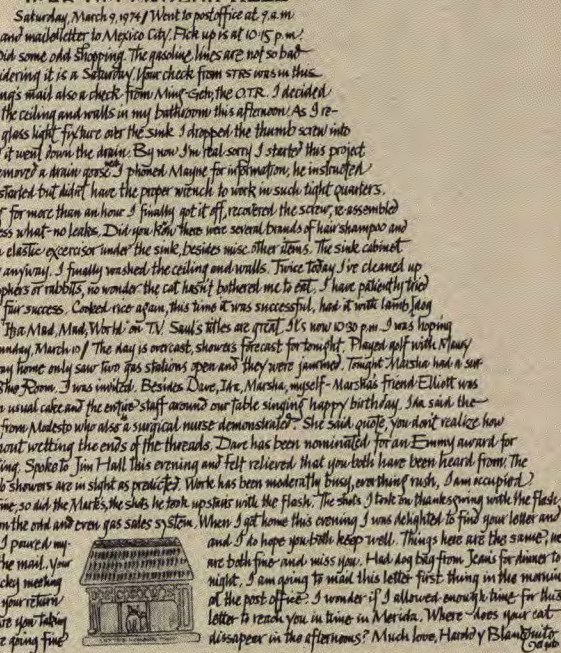 Saturday, March 9, 1974/ Went to postoffice at 9 a.m
and mailed letter to Mexico City. Pick up is at 10:15 p.m.
Did some odd shopping. The gasoline lines are not so bad
idering it is a Saturday. Your check from STRS was in this
ng's mail also a check from Ming-Geh, the O.T.R. I decided
the ceiling and walls in my bathroom this afternoon. As I re-
glass light fixture over the sink I dropped the thumb screw into
it went down the drain. By now I'm real sorry I started this project
emoved a drain goose neck I phoned Mayne for information, he instructed
started but didn't have the proper wrench to work in such tight quarters.
for more than an hour I finally got it off, recovered the screw, re-assembled
ess what-no leaks. Did you know there were several brands of hair shampoo and
elastic excercisor under the sink, besides misc other items. The sink cabinet
anyway. I finally washed the ceiling and walls. Twice today I've cleaned up
phers or rabbits, no wonder the cat hasn't bothered me to eat. I have patiently tried
fair success. Cooked rice again, this time it was successful, had it with lamb/dog
It's a Mad, Mad, World" on TV. Saul's titles are great. It's now 10:30 p.m. I was hoping
unday, March 10/ The day is overcast, showers forecast for tonight. Played golf with Maury
ay home only saw two gas stations open and they were jammed. Tonight Marsha had a sur-
Ship Room. I was invited. Besides Dave, Ida, Marsha, myself- Marsha's friend Elliott was
usual cake and the entire staff around our table singing happy birthday. Ida said the
from Modesto who also a surgical nurse demonstrated? She said quote, you don't realize how
hout wetting the ends of the threads. Dave has been nominated for an Emmy award for
ing. Spoke to Jim Hall this evening and felt relieved that you both have been heard from. The
showers are in sight as predicted. Work has been moderatly busy, everthing rush, I am occupied
ine, so did the Mark's, the shots he took upstairs with the flash. The shots I took on thanksgiving with the flash
om the odd and even gas sales system. When I got home this evening I was delighted to find your letter and
I paired my and I do hope you both keep well. Things here are the same, we
he mail. Your are both fine and miss you. Had dog bag from Jean's for dinner to
cky meeting night, I am going to mail this letter first thing in the mornin
your return at the post office. I wonder if I allowed enough time for this
re you taking letter to reach you in time in Merida. Where does your cat
e going fine dissapear in the afternoons? Much love, Harold y Blanquito